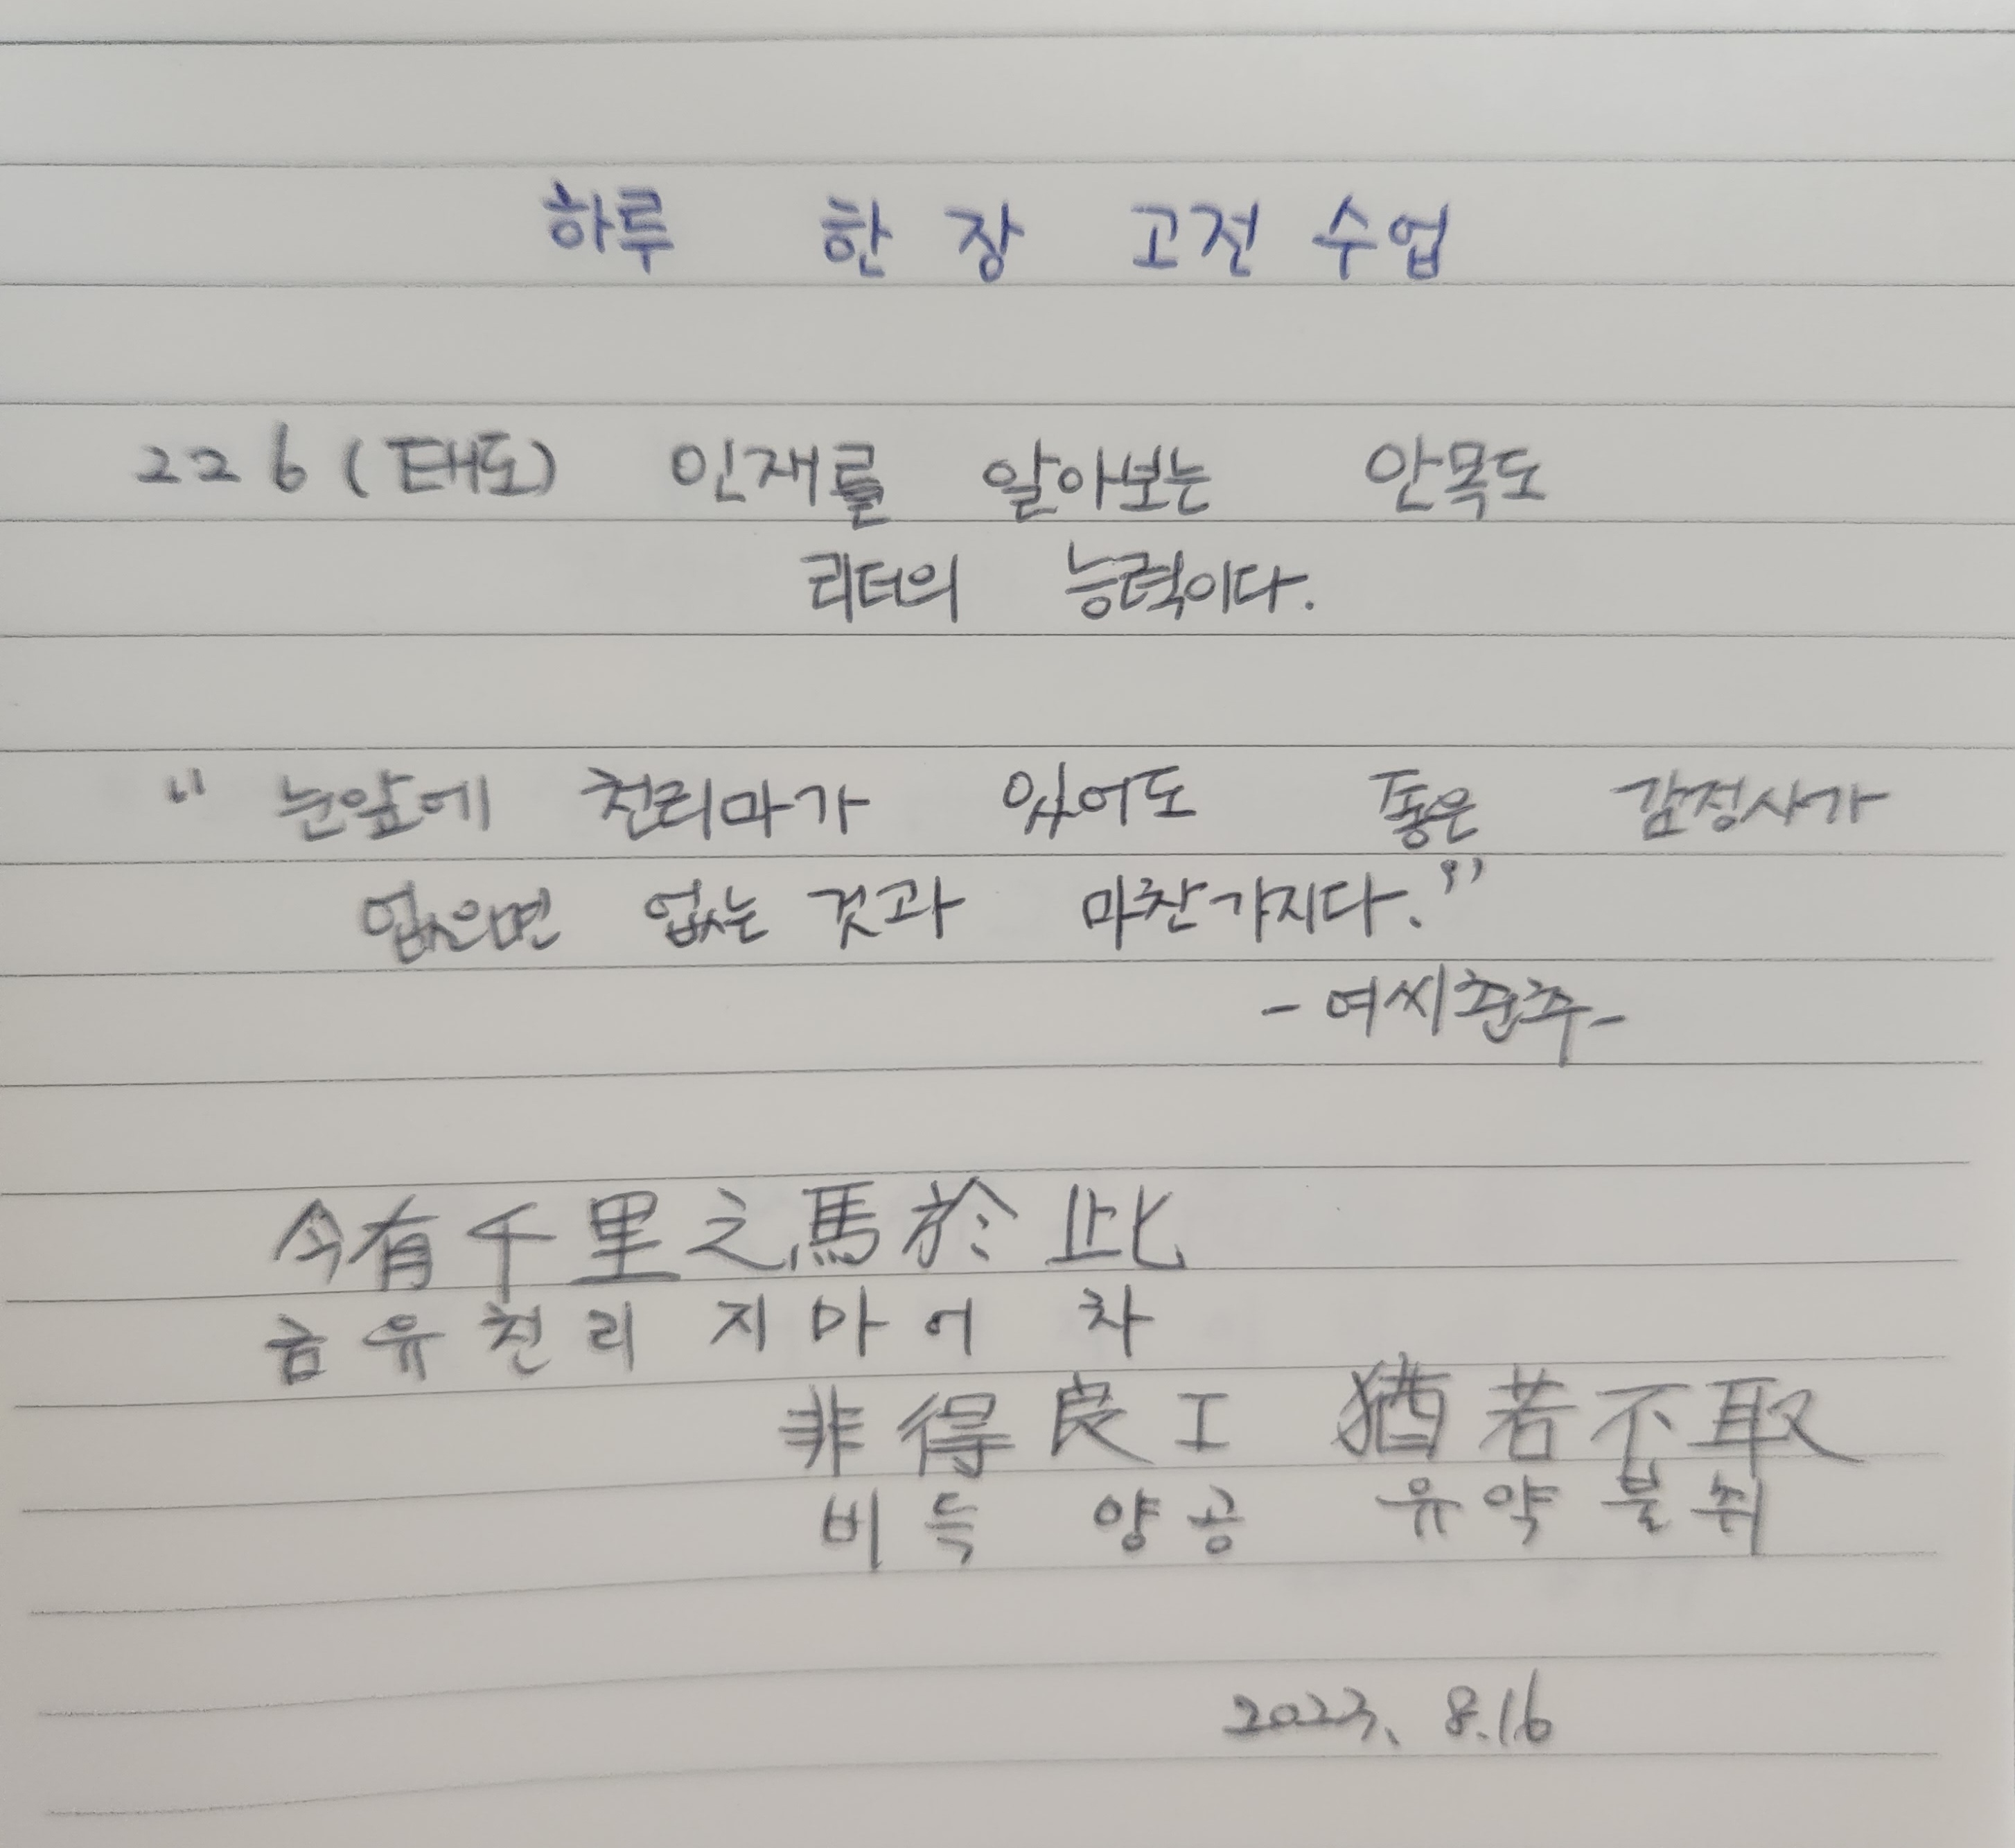 하루 한 장 고전 수업
226 (태도) 인재를 알아보는 안목도
리더의 능력이다.
“ 눈앞에 천리마가 있어도 좋은 감정사가
없으면 없는 것과 마찬가지다.”
- 여씨춘추 -
今有千里之馬於此
금유천리지마어차
非得良工 猶若不取
비득양공 유약불취
2023. 8.16